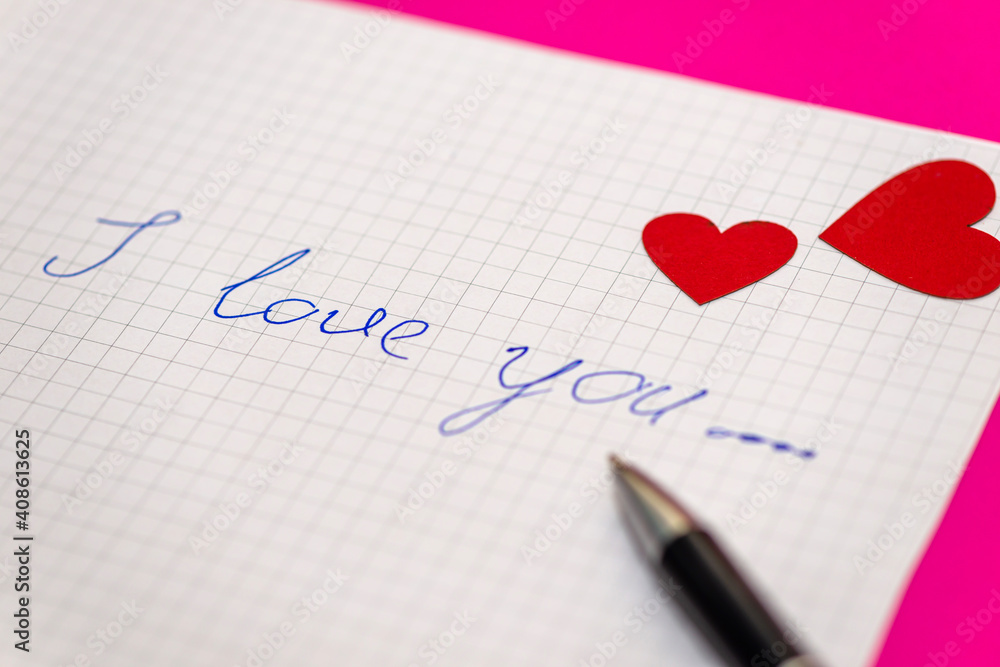 I love you....
Adobe Stock | #408613625